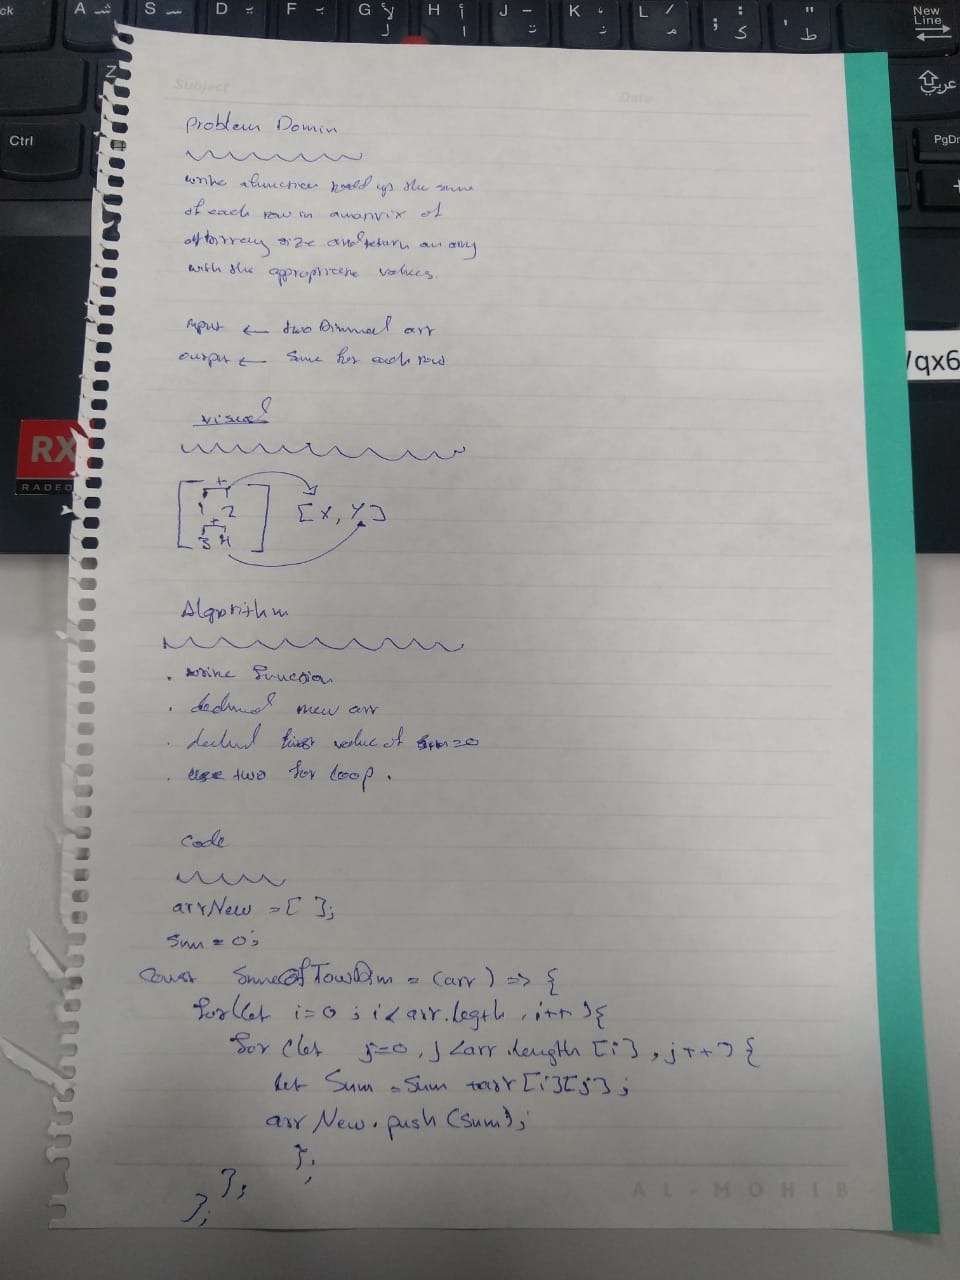 ck
A ش
S س
D ي
F ب
G لأ ل
H أ ا
J ـ ت
K ، ن
L / م
: ; ك
" ' ط
New Line
Z
عربي
Ctrl
PgDn
Subject
Date
Problem Domin
write a function to add up the sum
of each row in amatrix of
arbitrary size and return an array
with the appropriate values.
input ← two Dimmal arr
output ← sum for each row
/qx6
visual
RX
RADEO
+
1 2
[X, Y]
+
3 4
Algorithm
. write function
. new arr
. first value of sum=0
. use two for loop.
code
arrNew = [ ];
sum = 0;
const SumeOfTowDim = (arr) => {
for(let i=0 ; i<arr.legth , i++){
for (let j=0 , j<arr.length [i] , j++) {
let Sum = Sum +arr[i][j];
arrNew.push(sum);
};
};
};
AL-MOHIB